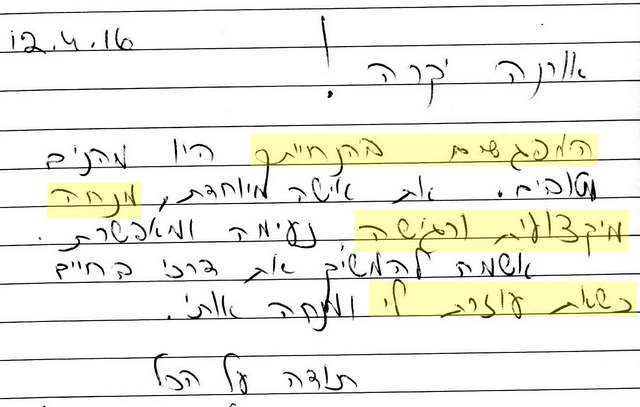 12.4.16
אורנה יקרה!
המפגשים בהנחייתך היו מהנים
וטובים. את אישה מיוחדת, מנחה
מיקצועית ורגישה נעימה ומאפשרת.
אשמח להמשיך את דרכי בחיים
כשאת עוזרת לי ומנחה אותי.
תודה על הכל